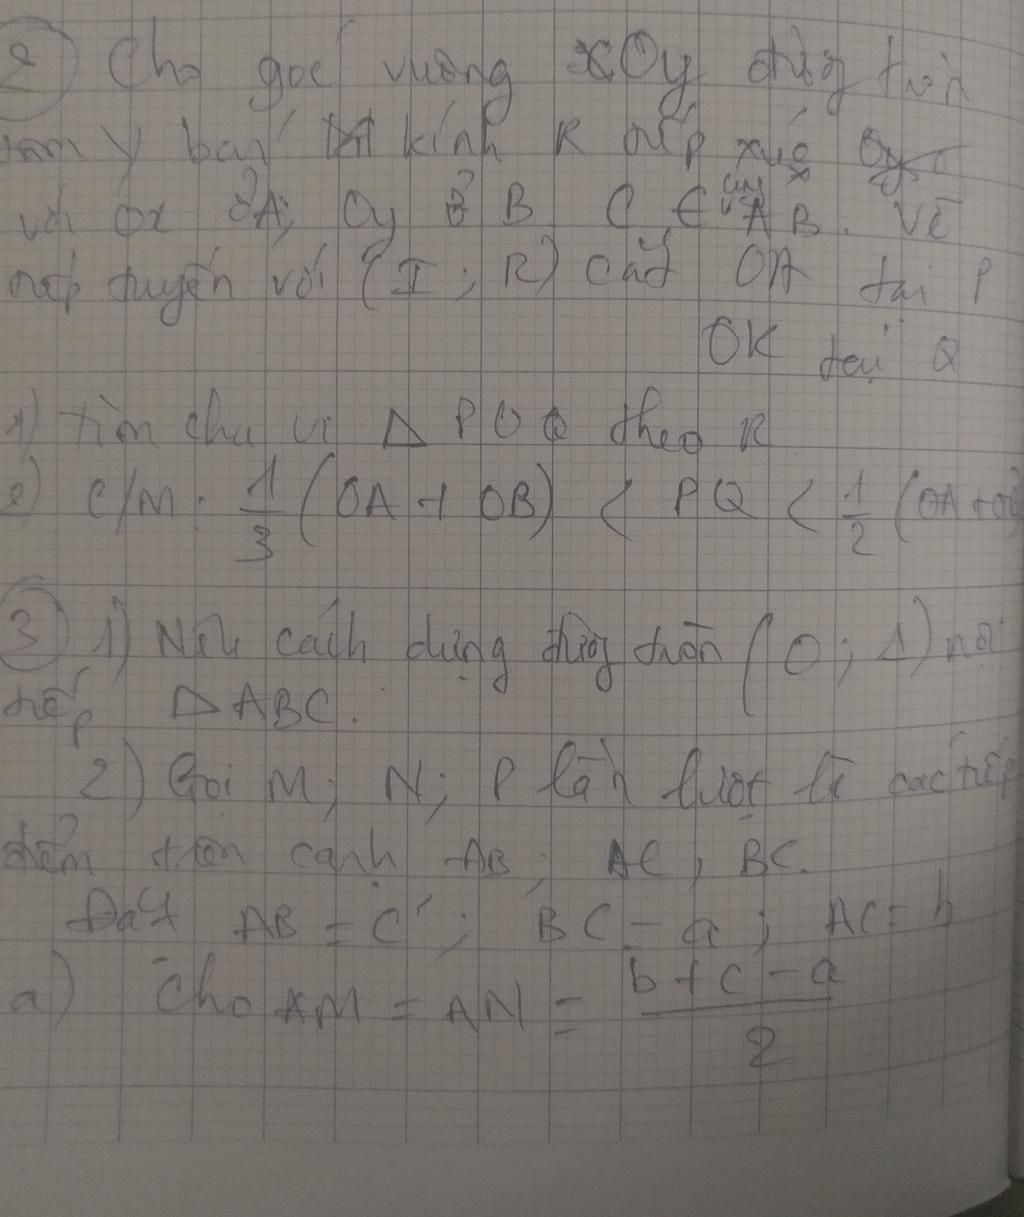 2) Cho góc vuông xOy đường tròn
tâm y bán kính R tiếp xúc
với Ox ở A, Oy ở B. C ∈ cung AB. Vẽ
tiếp tuyến với (I; R) cắt OA tại P
OK tại Q
1) Tìm chu vi Δ POQ theo R
2) C/M: 1/3 (OA + OB) < PQ < 1/2 (OA + OB
3) 1) Nêu cách dựng đường tròn (O; 1) nội
tiếp Δ ABC.
2) Gọi M; N; P lần lượt là các tiếp
điểm trên cạnh AB; AC; BC.
Đặt AB = C; BC = a; AC = b
a) Cho AM = AN = b + c - a / 2